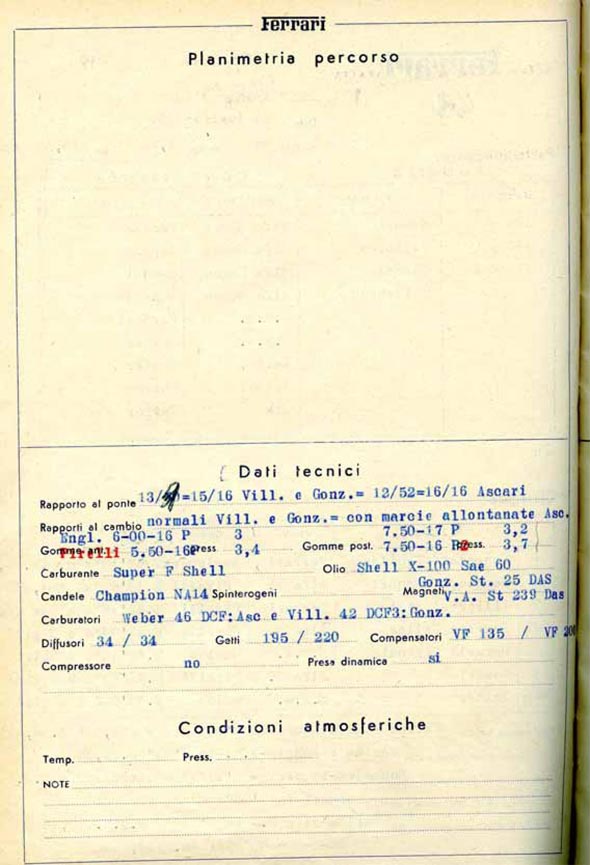 Ferrari
Planimetria percorso
Dati tecnici
Rapporto al ponte 13/ =15/16 Vill. e Gonz.= 12/52=16/16 Ascari
Rapporti al cambio normali Vill. e Gonz.= con marcie allontanate Asc.
Engl. 6-00-16 P 3 7.50-17 P 3,2
Gomme ant. Pirelli 5.50-16P press. 3,4 Gomme post. 7.50-16 press. 3,7
Carburante Super F Shell Olio Shell X-100 Sae 60
Gonz. St. 25 DAS
Candele Champion NA14 Spinterogeni Magneti V.A. St 239 Das
Carburatori Weber 46 DCF:Asc e Vill. 42 DCF3:Gonz.
Diffusori 34 / 34 Getti 195 / 220 Compensatori VF 135 / VF 200
Compressore no Presa dinamica si
Condizioni atmosferiche
Temp. Press.
NOTE